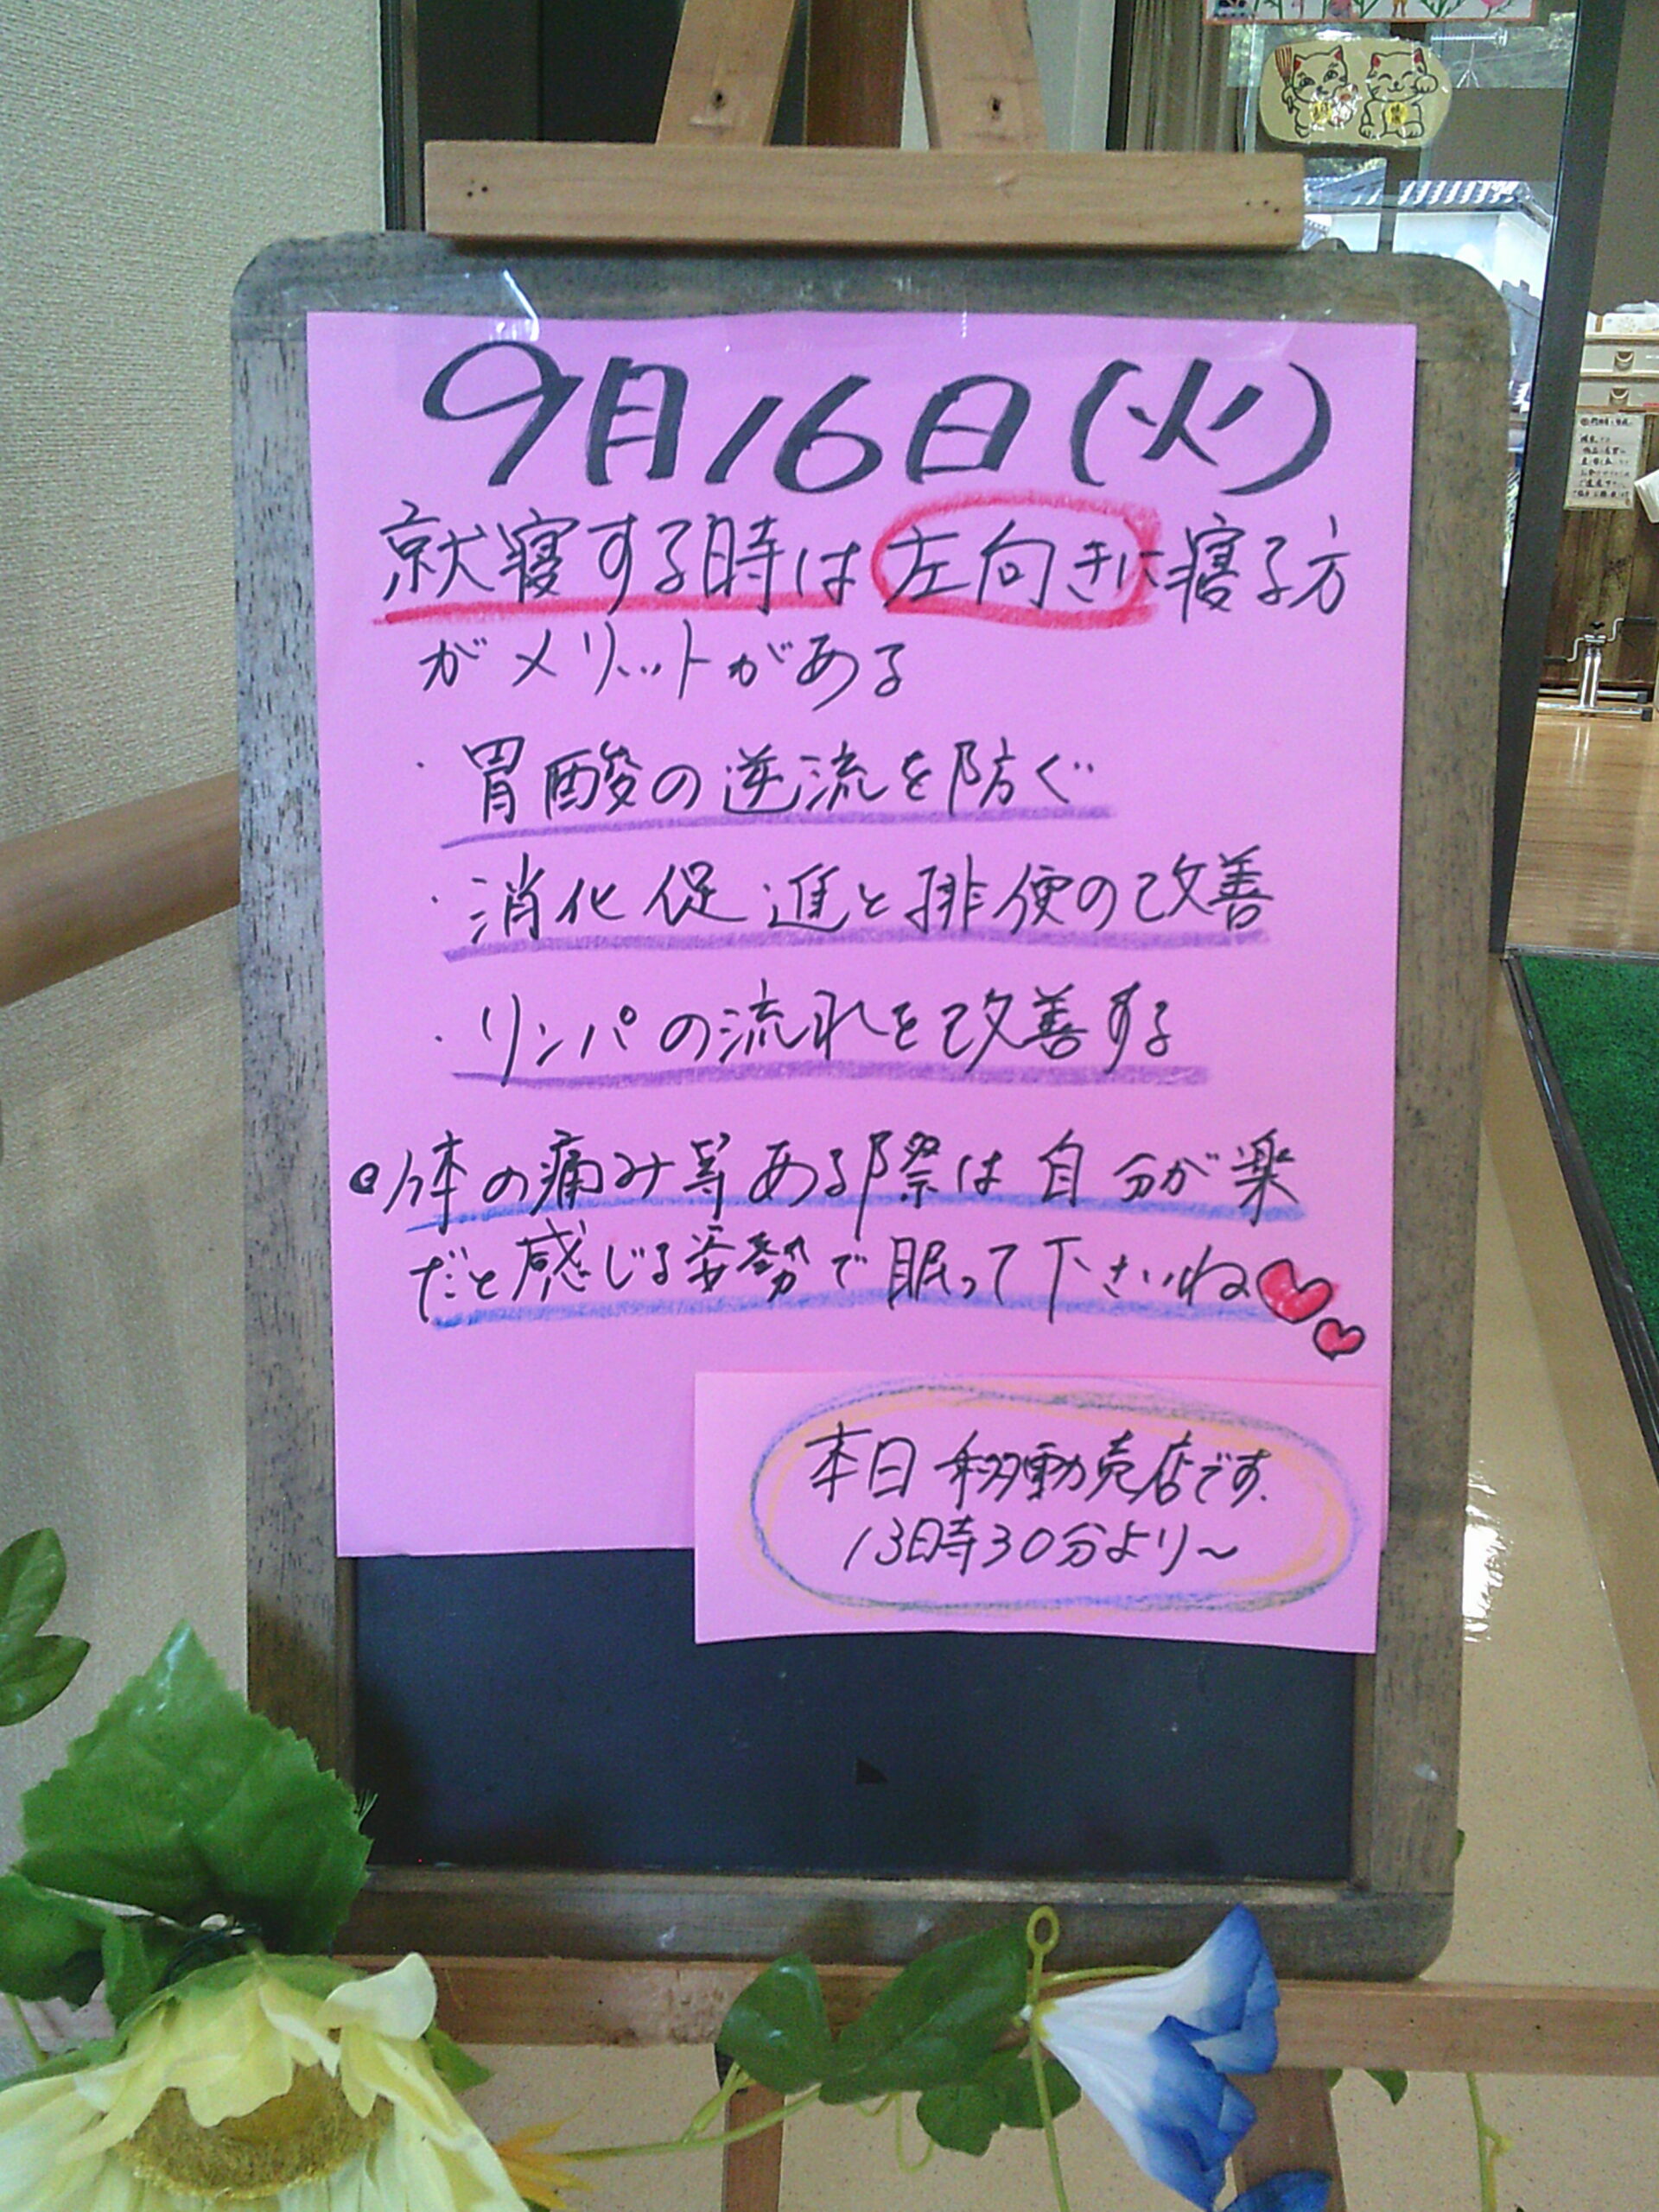 9月16日(火)
就寝する時は左向きに寝る方
がメリットがある
・胃酸の逆流を防ぐ
・消化促進と排便の改善
・リンパの流れを改善する
●体の痛み等ある際は自分が楽
だと感じる姿勢で眠って下さいね
本日移動売店です.
13時30分より〜